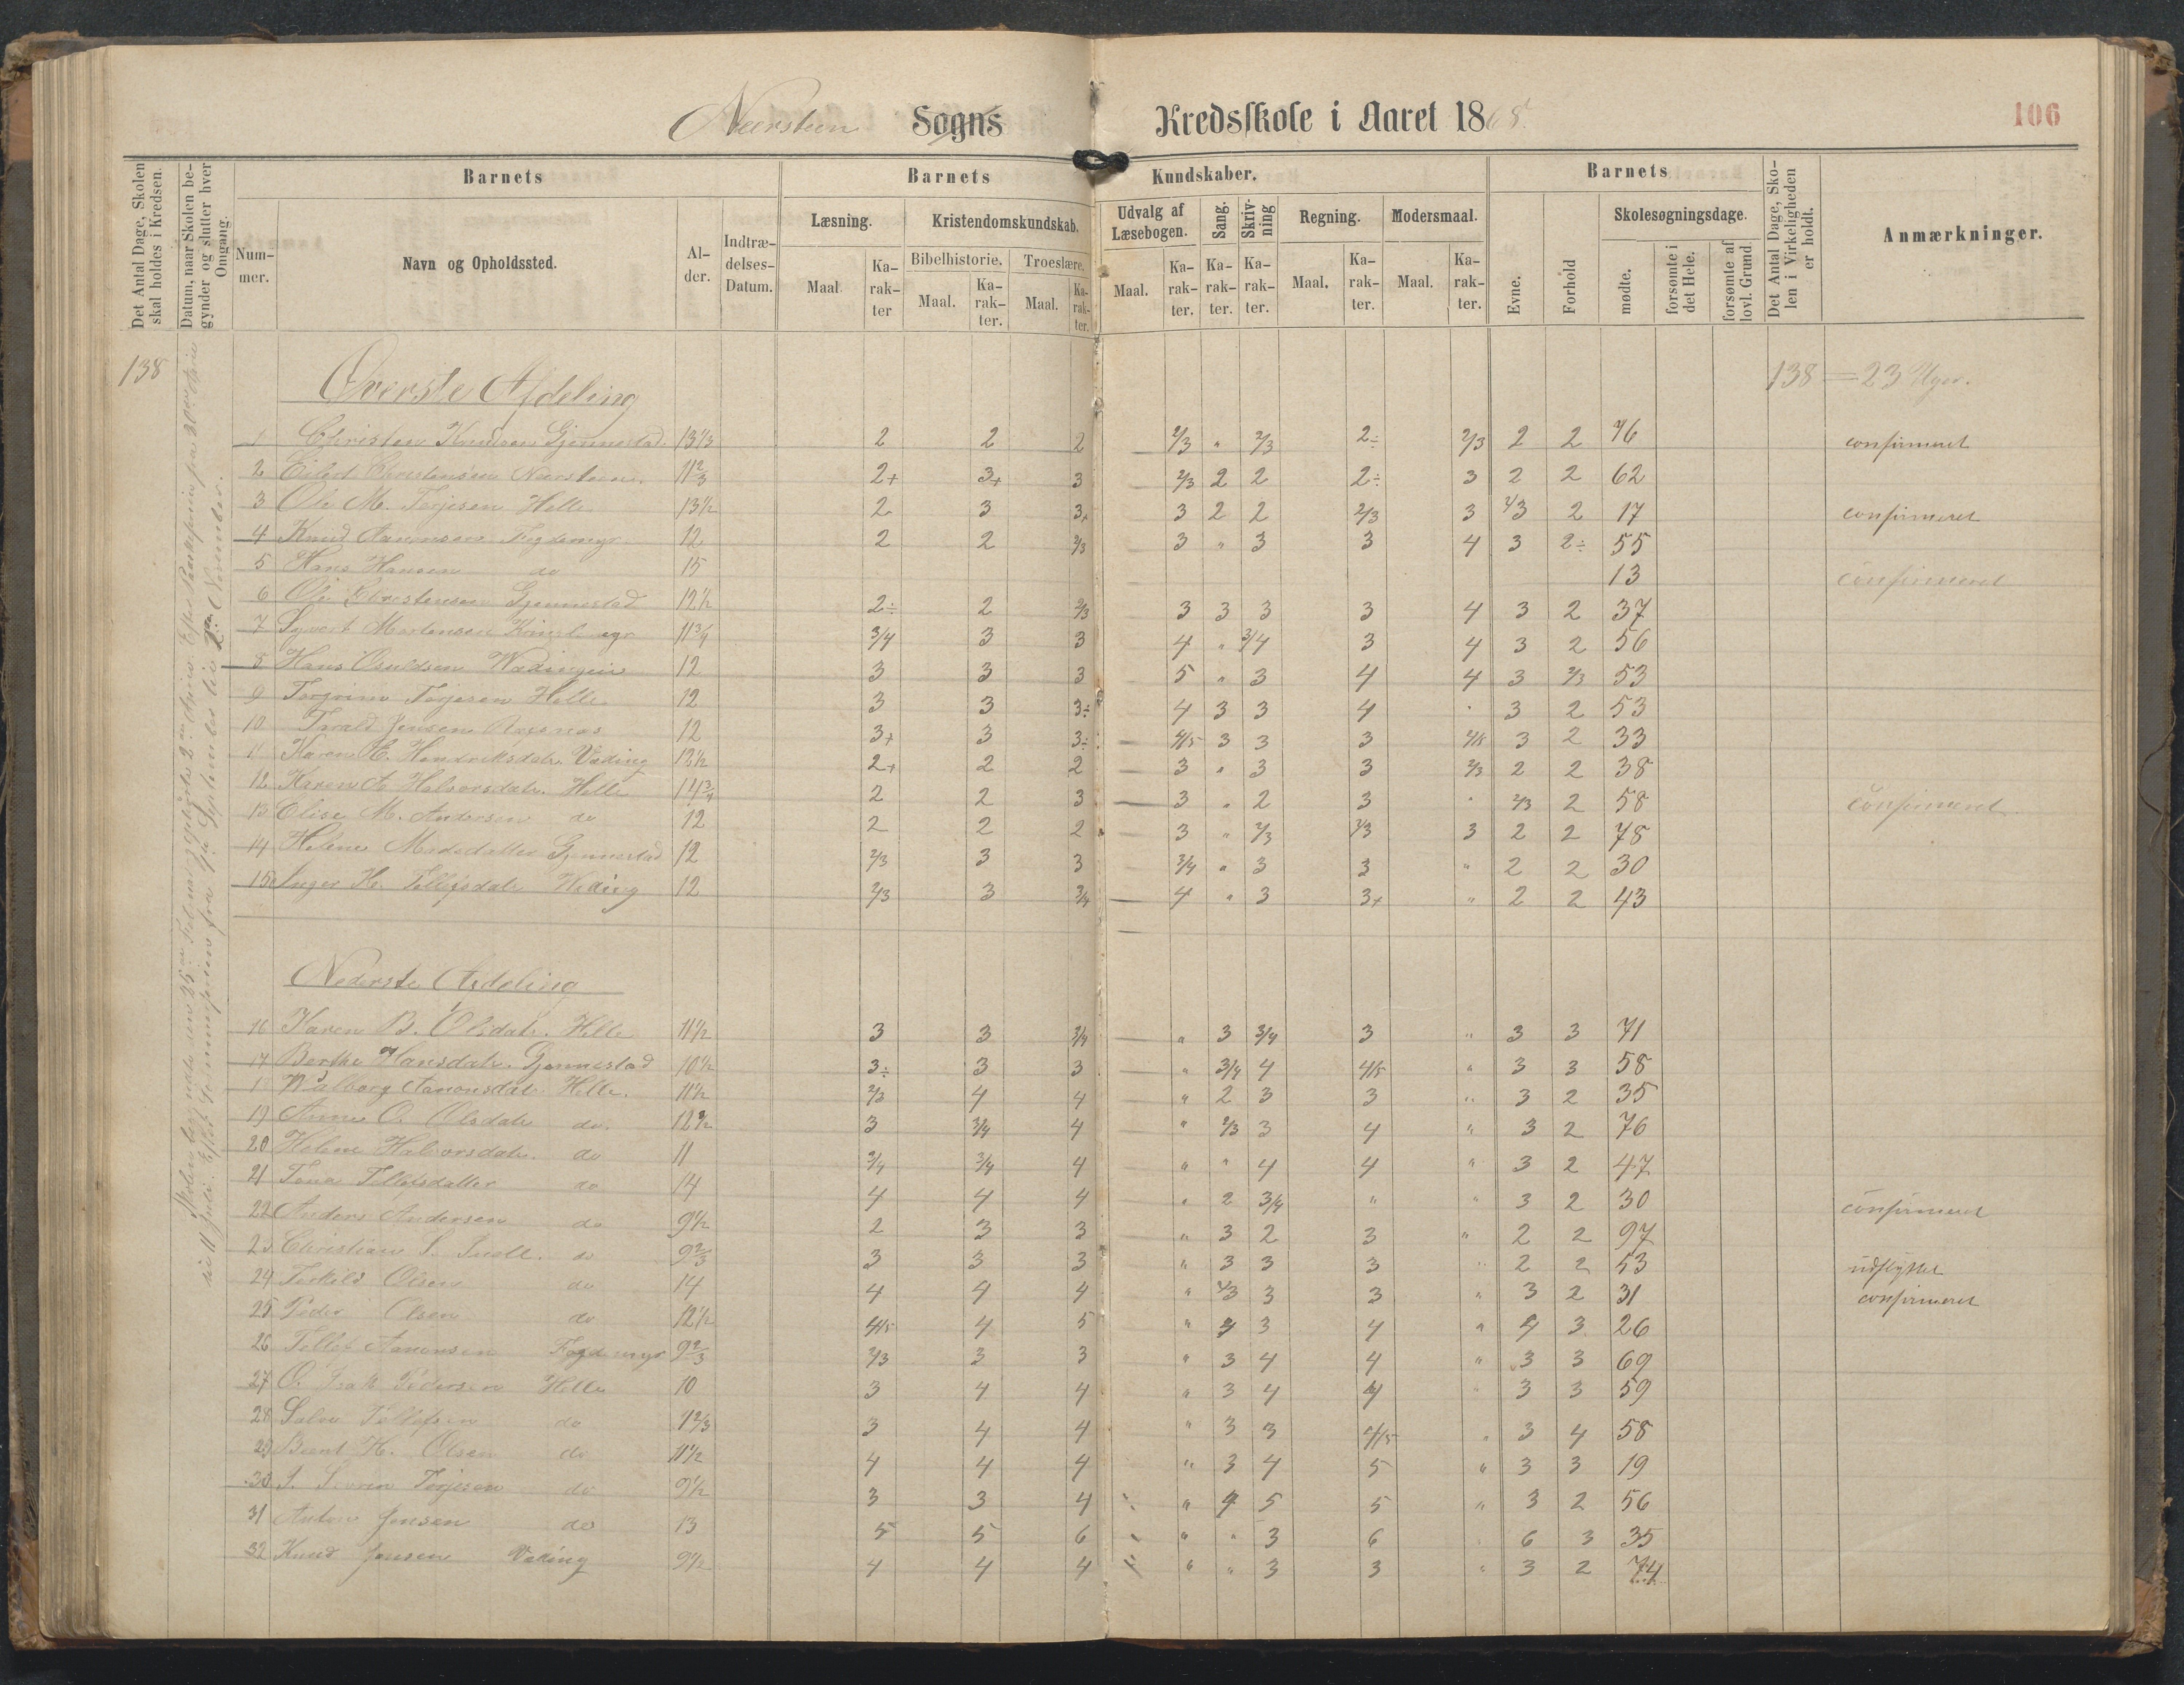 Neersteen Sogns Kredsskole i Aaret 1868.
106
Det Antal Dage, Skolen skal holdes i Kredsen.
Datum, naar Skolen begynder og slutter hver Omgang.
Barnets
Nummer.
Navn og Opholdssted.
Alder.
Indtrædelses-Datum.
Barnets Kundskaber.
Læsning.
Maal
Karakter
Kristendomskundskab.
Bibelhistorie.
Maal.
Karakter.
Troeslære.
Maal.
Karakter.
Udvalg af Læsebogen.
Maal.
Karakter.
Sang.
Karakter.
Skrivning
Karakter.
Regning.
Maal.
Karakter.
Modersmaal.
Maal.
Karakter.
Barnets
Evne.
Forhold
Skolesøgningsdage.
mødte.
forsømte i det Hele.
forsømte af lovl. Grund
Det Antal Dage, Skolen i Virkeligheden er holdt.
Anmærkninger.
138 138 = 23 Uger.
Øverste Afdeling
1 Christen Knudsen Gjennestad. 13 1/3 2 2 2 2/3 " 2/3 2÷ 2/3 2 2 76 confirmeret
2 Eilert Christensen Neersteen. 11 2/3 2+ 3+ 3 2/3 2 2 2÷ 3 2 2 62
3 Ole M. Terjesen Helle 13 1/2 2 3 3+ 3 2 2 2/3 3 2/3 2 17 confirmeret
4 Knud Aanonsen 12 2 2 2/3 3 " 3 3 4 3 2÷ 55
5 Hans Hansen do 15 13 confirmeret
6 Ole Christensen Gjennestad 12 1/2 2÷ 2 2/3 3 3 3 3 4 3 2 37
7 Syvert Mortensen 11 3/4 3/4 3 3 4 " 3/4 3 4 3 2 56
8 Hans Osuldsen 12 3 3 3 5 " 3 4 4 3 2/3 53
9 Terjesen Helle 12 3 3 3÷ 4 3 3 4 . 3 2 53
10 Tarald Jensen 12 3+ 3 3÷ 4/5 3 3 3 4/5 3 2 33
11 Karen E. Hendriksdatr. Væding 12 1/2 2+ 2 2 3 " 3 3 2/3 2 2 38
12 Karen A Halvorsdatr. Helle 14 3/4 2 2 3 3 " 2 3 . 2/3 2 58 confirmeret
13 Elise M. Andersen do 12 2 2 2 3 " 2/3 2/3 3 2 2 78
14 Helene Madsdatter Gjennestad 12 2/3 3 3 3/4 " 3 3 " 2 2 30
15 Inger Ke. Tellefsdatr Væding 12 2/3 3 3/4 4 " 3 3+ " 2 2 43
Nederste Afdeling
16 Karen B. Olsdatr. Helle 11 1/2 3 3 3/4 " 3 3/4 3 " 3 3 71
17 Berthe Hansdatr. Gjennestad 10 1/2 3÷ 3 3 " 3/4 4 4/5 " 3 3 58
18 Valborg Aanonsdatr. Helle. 11 1/2 2/3 4 4 " 2 3 3 " 3 2 35
19 Anne O. Olsdatr do. 3 3/4 4 " 2/3 3 4 " 3 2 76
20 Helene Halvorsdatr. do 11 3/4 3/4 4 " " 4 4 " 3 2 47
21 Tone Tellefsdatter do 14 4 4 4 " 2 3/4 " " 3 2 30 confirmeret
22 Anders Andersen do 9 1/2 2 3 3 " 3 2 3 " 2 2 97
23 Christian S. do 9 2/3 3 3 3 " 3 3 3 " 2 2 53 udflyttet
24 Terkild Olsen do 14 4 4 4 " 2/3 3 3 " 3 2 31 confirmeret
25 Peder Olsen do 12 1/2 4/5 4 5 " 4 3 4 " 4 3 26
26 Tellef Aanonsen 9 2/3 2/3 3 3 " 3 4 4 " 3 3 69
27 O. Isak Pedersen Helle 10 3 4 4 " 3 4 4 " 3 3 59
28 Salve Tellefsen do 3 4 4 " 3 3 4/5 " 3 4 58
29 Bernt K. Olsen do 11 1/2 4 4 4 " 3 4 5 " 3 3 19
30 Terjesen do 9 1/2 3 3 4 " 4 5 5 " 3 2 56
31 Anton Jensen do 13 5 5 6 " " 3 6 6 3 35
32 Knud Jensen Væding 9 1/2 4 4 4 " " 3 3 " 3 2 74